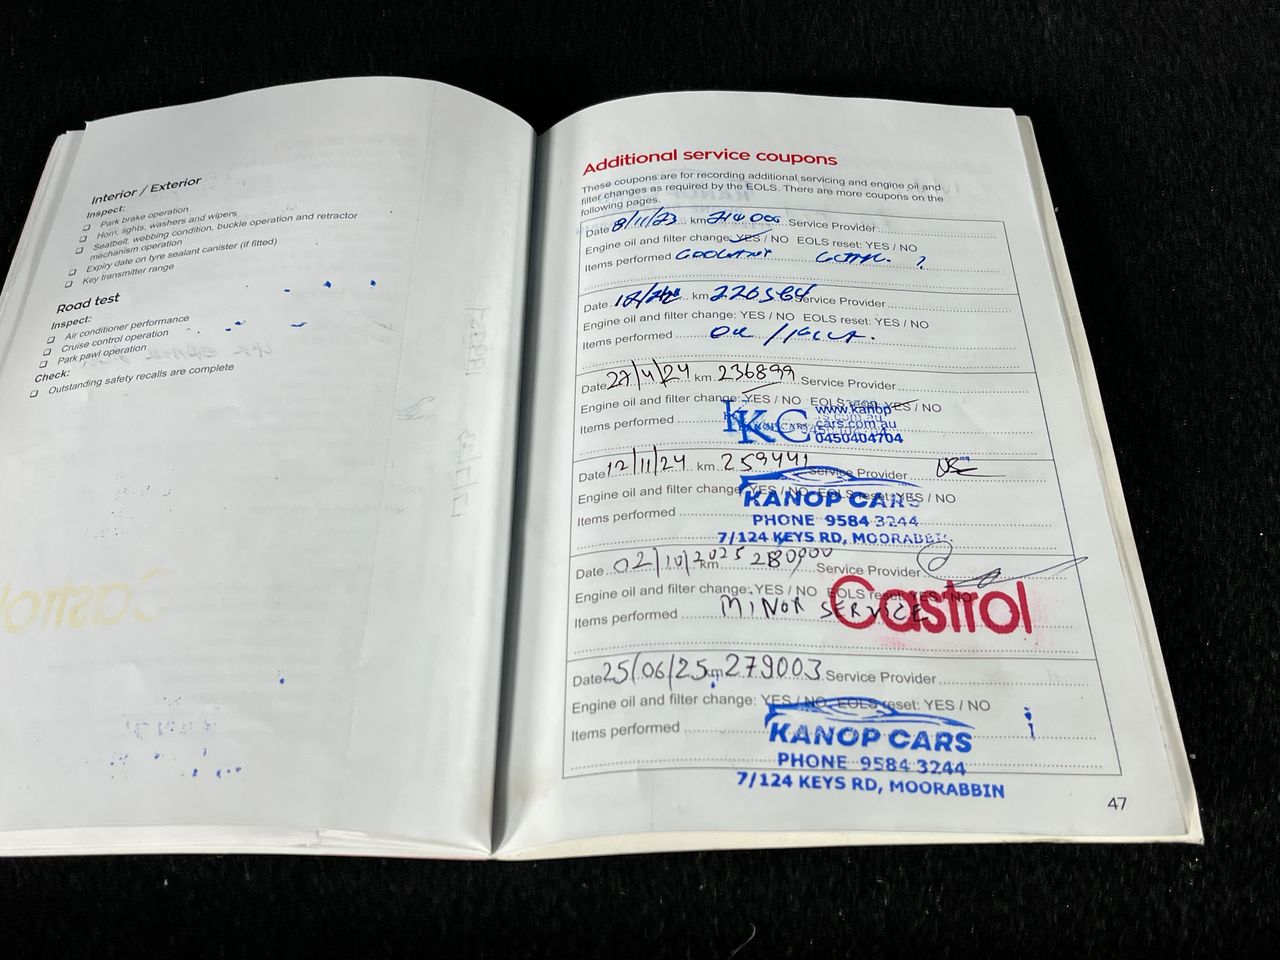 Interior / Exterior
Inspect:
❏ Park brake operation
❏ Horn, lights, washers and wipers
❏ Seatbelt, webbing condition, buckle operation and retractor
mechanism operation
❏ Expiry date on tyre sealant canister (if fitted)
❏ Key transmitter range
Road test
Inspect:
❏ Air conditioner performance
❏ Cruise control operation
❏ Park pawl operation
Check:
❏ Outstanding safety recalls are complete
Additional service coupons
These coupons are for recording additional servicing and engine oil and
filter changes as required by the EOLS. There are more coupons on the
following pages.
Date 8/11/23 km 214000 Service Provider
Engine oil and filter change: YES / NO EOLS reset: YES / NO
Items performed COOLANT
Date km 226564 Service Provider
Engine oil and filter change: YES / NO EOLS reset: YES / NO
Items performed Oil /
Date 27/4/24 km 236899 Service Provider
Engine oil and filter change: YES / NO EOLS YES / NO
Items performed KC www.kanop
cars.com.au
0450404704
Date 12/11/24 km 259441 Service Provider
Engine oil and filter change YES / NO EOLS reset: YES / NO
Items performed KANOP CARS
PHONE 9584 3244
7/124 KEYS RD, MOORABBIN
Date 02/10/2025 km 280900 Service Provider
Engine oil and filter change: YES / NO EOLS reset: YES / NO
Items performed MINOR SERVICE Castrol
Date 25/06/25 km 279003 Service Provider
Engine oil and filter change: YES / NO EOLS reset: YES / NO
Items performed KANOP CARS
PHONE 9584 3244
7/124 KEYS RD, MOORABBIN
47